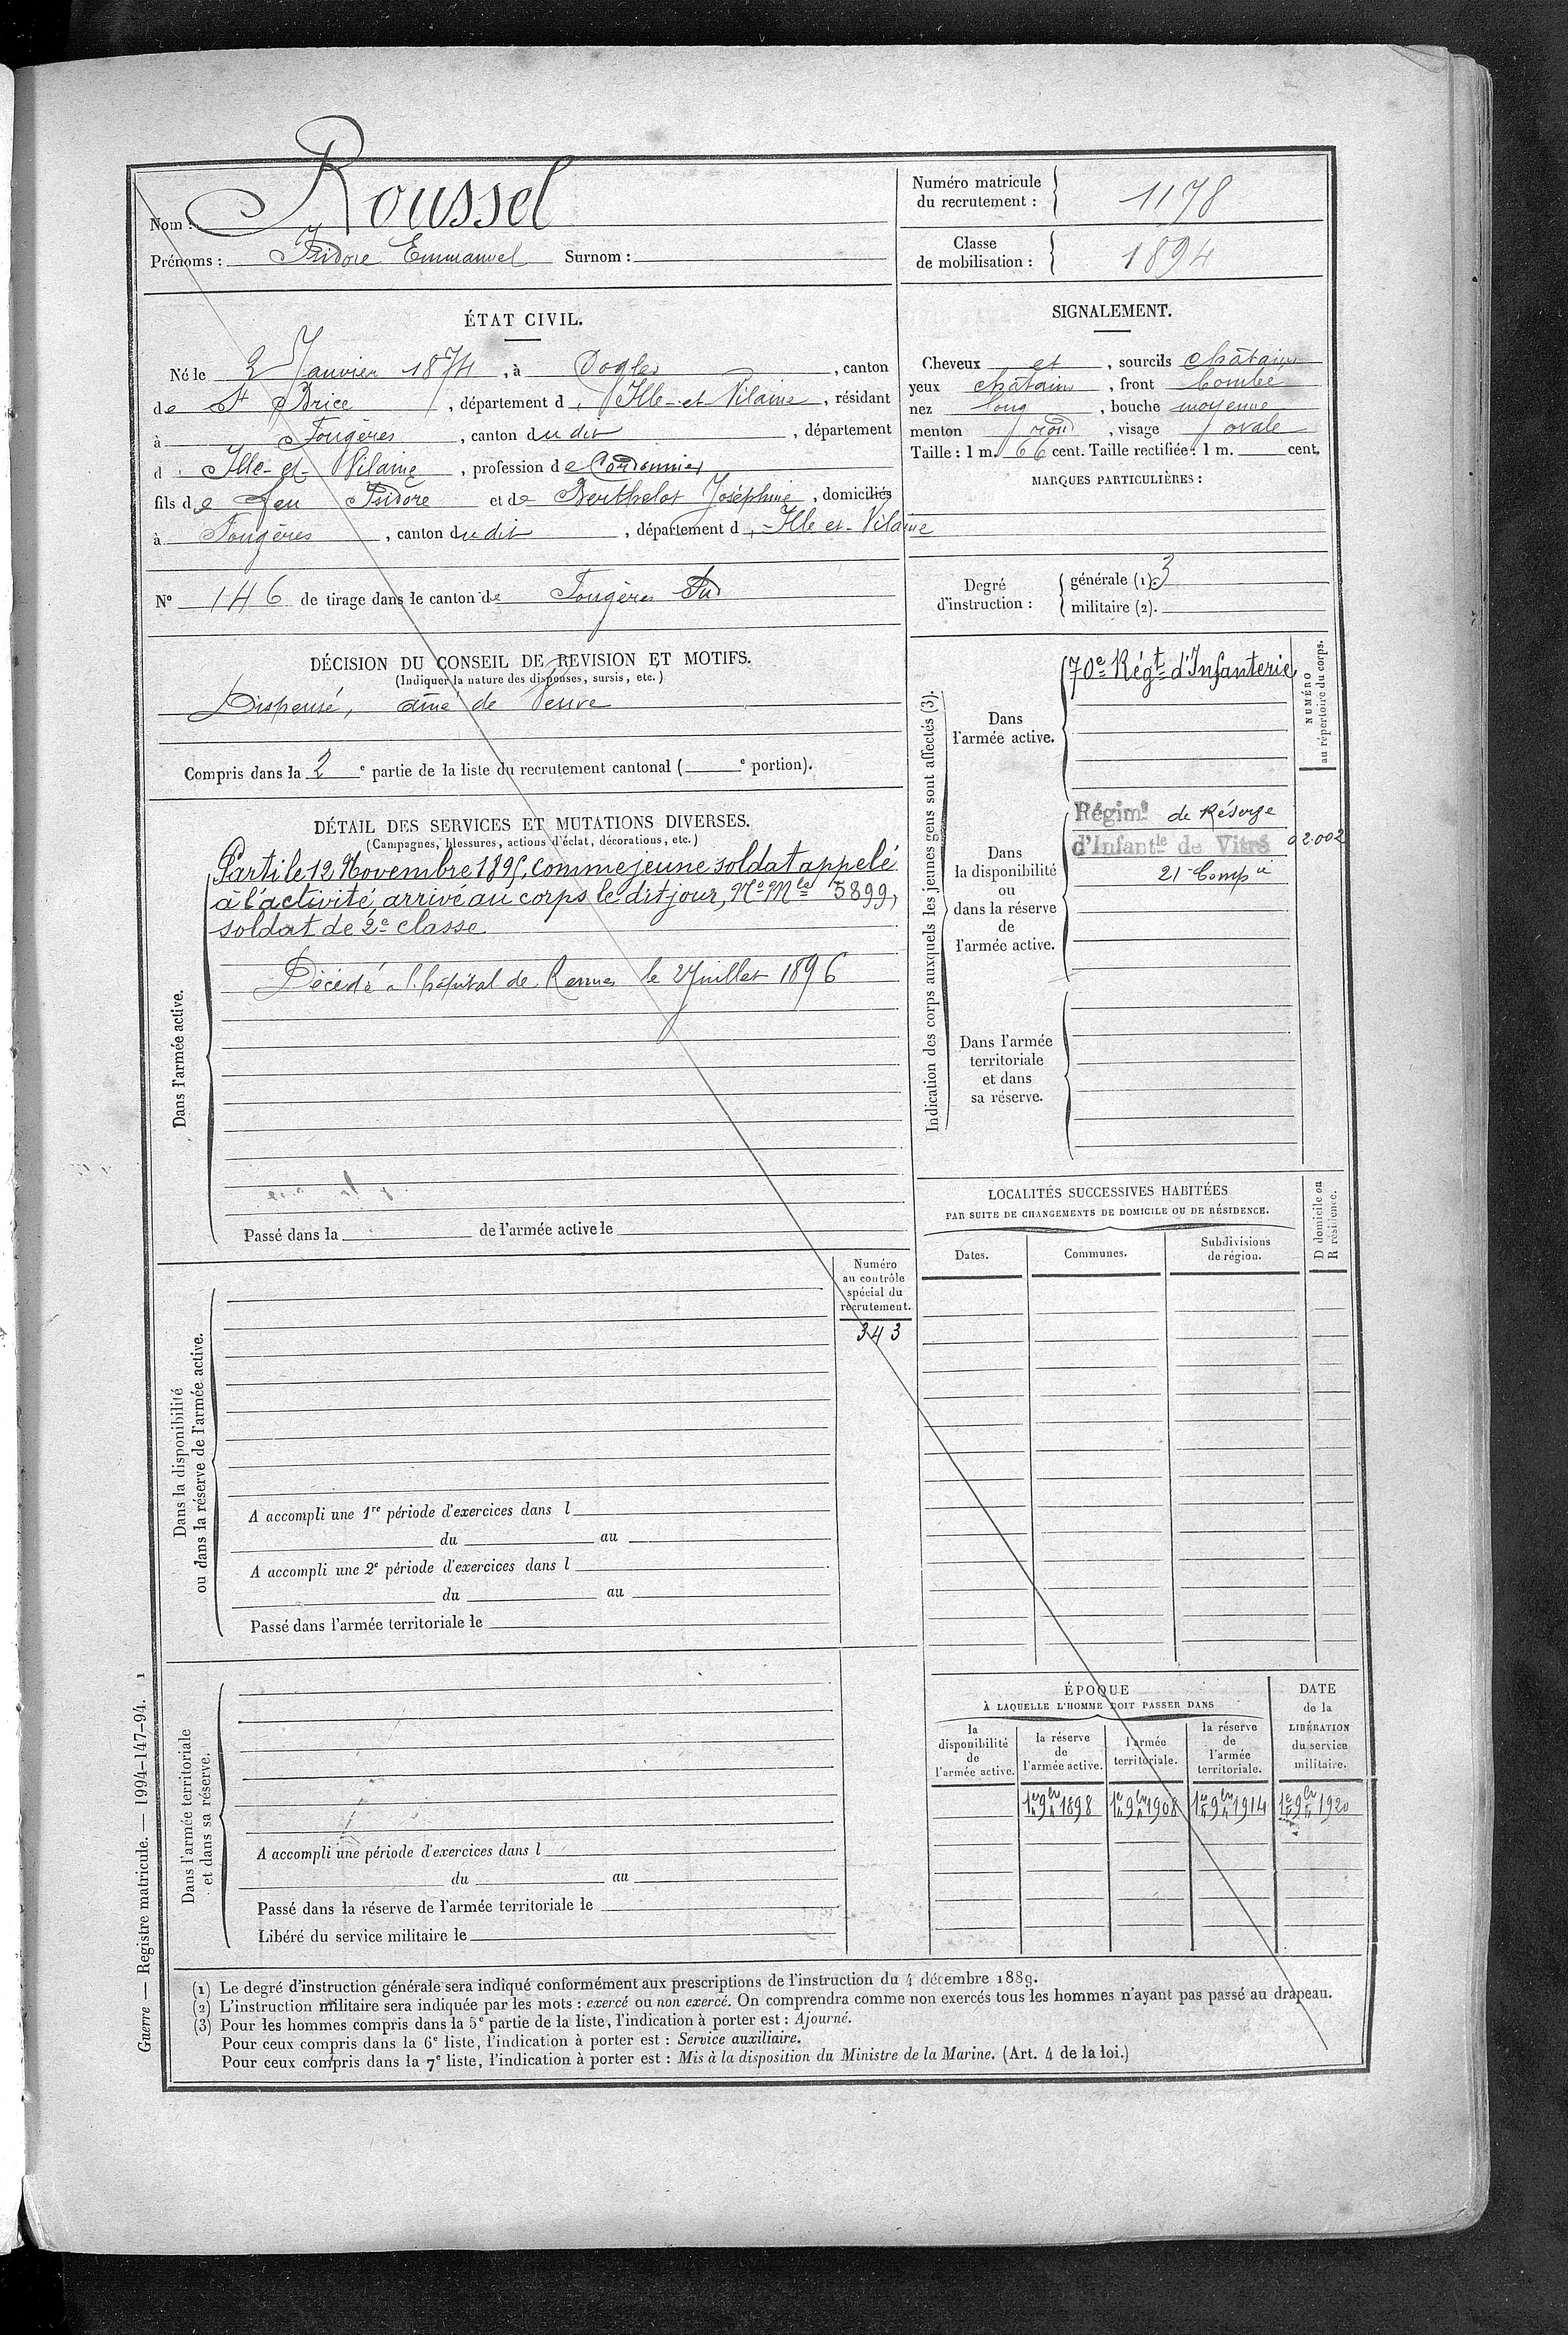 Nom : Roussel
Prénoms : Isidore Emmanuel Surnom :
Numéro matricule du recrutement : 1178
Classe de mobilisation : 1894
ÉTAT CIVIL.
Né le 2 Janvier 1874, à Cogles, canton
de St Brice, département d'Ille-et-Vilaine, résidant
à Fougères, canton dudit, département
d'Ille-et-Vilaine, profession de Cordonnier
fils de feu Isidore et de Berthelot Joséphine, domiciliés
à Fougères, canton dudit, département d'Ille-et-Vilaine
N° 146 de tirage dans le canton de Fougères Sud
SIGNALEMENT.
Cheveux et, sourcils châtains
yeux châtains, front bombé
nez long, bouche moyenne
menton rond, visage ovale
Taille : 1 m. 66 cent. Taille rectifiée : 1 m. cent.
MARQUES PARTICULIÈRES :
Degré d'instruction :
générale (1). 3
militaire (2).
DÉCISION DU CONSEIL DE REVISION ET MOTIFS.
(Indiquer la nature des dispenses, sursis, etc.)
Dispensé, aîné de Veuve
Compris dans la 2e partie de la liste du recrutement cantonal ( e portion).
DÉTAIL DES SERVICES ET MUTATIONS DIVERSES.
(Campagnes, blessures, actions d'éclat, décorations, etc.)
Dans l'armée active.
Parti le 12 Novembre 1895, comme jeune soldat appelé
à l'activité, arrivé au corps le dit jour, N° Mle 5899,
soldat de 2e classe
Décédé à l'hôpital de Rennes le 2 Juillet 1896
Passé dans la de l'armée active le
Indication des corps auxquels les jeunes gens sont affectés (3).
NUMÉRO
au répertoire du corps.
Dans
l'armée active.
70e Régt d'Infanterie
Dans
la disponibilité
ou
dans la réserve
de
l'armée active.
Régimt de Réserve
d'Infantie de Vitré
21e Compie
02.002
Dans l'armée
territoriale
et dans
sa réserve.
LOCALITÉS SUCCESSIVES HABITÉES
PAR SUITE DE CHANGEMENTS DE DOMICILE OU DE RÉSIDENCE.
Dates.
Communes.
Subdivisions
de région.
D domicile ou
R résidence.
Dans la disponibilité
ou dans la réserve de l'armée active.
Numéro
au contrôle
spécial du
recrutement.
343
A accompli une 1re période d'exercices dans l
du au
A accompli une 2e période d'exercices dans l
du au
Passé dans l'armée territoriale le
Dans l'armée territoriale
et dans sa réserve.
A accompli une période d'exercices dans l
du au
Passé dans la réserve de l'armée territoriale le
Libéré du service militaire le
ÉPOQUE
À LAQUELLE L'HOMME DOIT PASSER DANS
la
disponibilité
de
l'armée active.
la réserve
de
l'armée active.
l'armée
territoriale.
la réserve
de
l'armée
territoriale.
DATE
de la
LIBÉRATION
du service
militaire.
1er 9bre 1898
1er 9bre 1908
1er 9bre 1914
1er 9bre 1920
(1) Le degré d'instruction générale sera indiqué conformément aux prescriptions de l'instruction du 4 décembre 1889.
(2) L'instruction militaire sera indiquée par les mots : exercé ou non exercé. On comprendra comme non exercés tous les hommes n'ayant pas passé au drapeau.
(3) Pour les hommes compris dans la 5e partie de la liste, l'indication à porter est : Ajourné.
Pour ceux compris dans la 6e liste, l'indication à porter est : Service auxiliaire.
Pour ceux compris dans la 7e liste, l'indication à porter est : Mis à la disposition du Ministre de la Marine. (Art. 4 de la loi.)
Guerre — Registre matricule. — 1994-147-94. 1